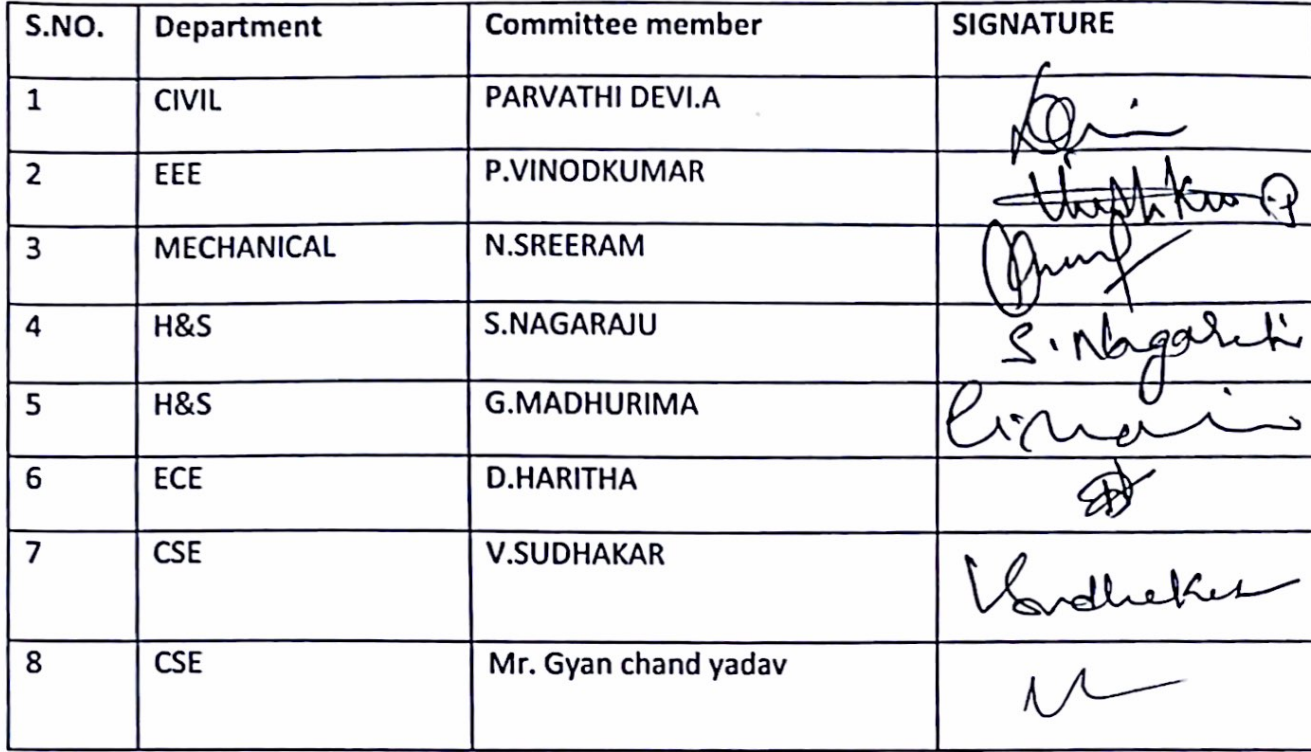 S.NO. Department Committee member SIGNATURE
1 CIVIL PARVATHI DEVI.A
2 EEE P.VINODKUMAR
3 MECHANICAL N.SREERAM
4 H&S S.NAGARAJU S. Nagaraju
5 H&S G.MADHURIMA
6 ECE D.HARITHA
7 CSE V.SUDHAKAR VSudhakar
8 CSE Mr. Gyan chand yadav